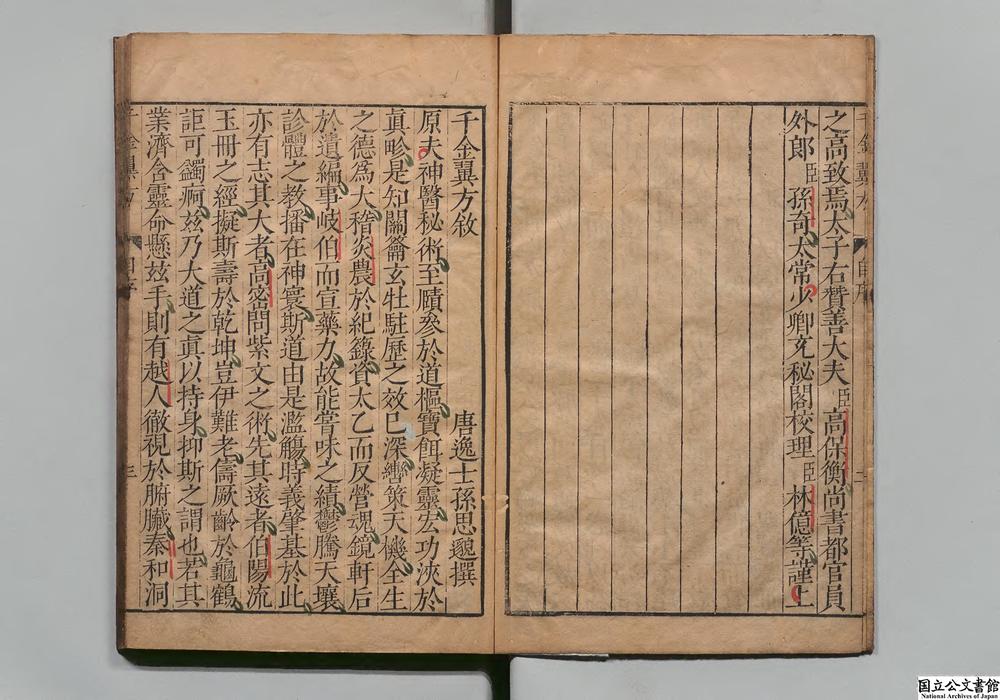 之高致焉太子右贊善大夫臣高保衡尚書都官員
外郎臣孫奇太常少卿充秘閣校理臣林億等謹上
千金翼方敘
唐逸士孫思邈撰
原夫神醫秘術至賾參於道樞寶餌凝靈宏功浹於
眞畛是知關籥玄牡駐歷之效已深轡策天機全生
之德爲大稽炎農於紀籙資太乙而反營魂鏡軒后
於遺編事岐伯而宣藥力故能嘗味之績鬱騰天壤
診體之教播在神寰斯道由是濫觴時義肇基於此
亦有志其大者高密問紫文之術先其遠者伯陽流
玉冊之經擬斯壽於乾坤豈伊難老儔厥齡於龜鶴
詎可蠲痾玆乃大道之眞以持身抑斯之謂也若其
業濟含靈命懸玆手則有越人徹視於腑臟秦和洞
三
国立公文書館
National Archives of Japan